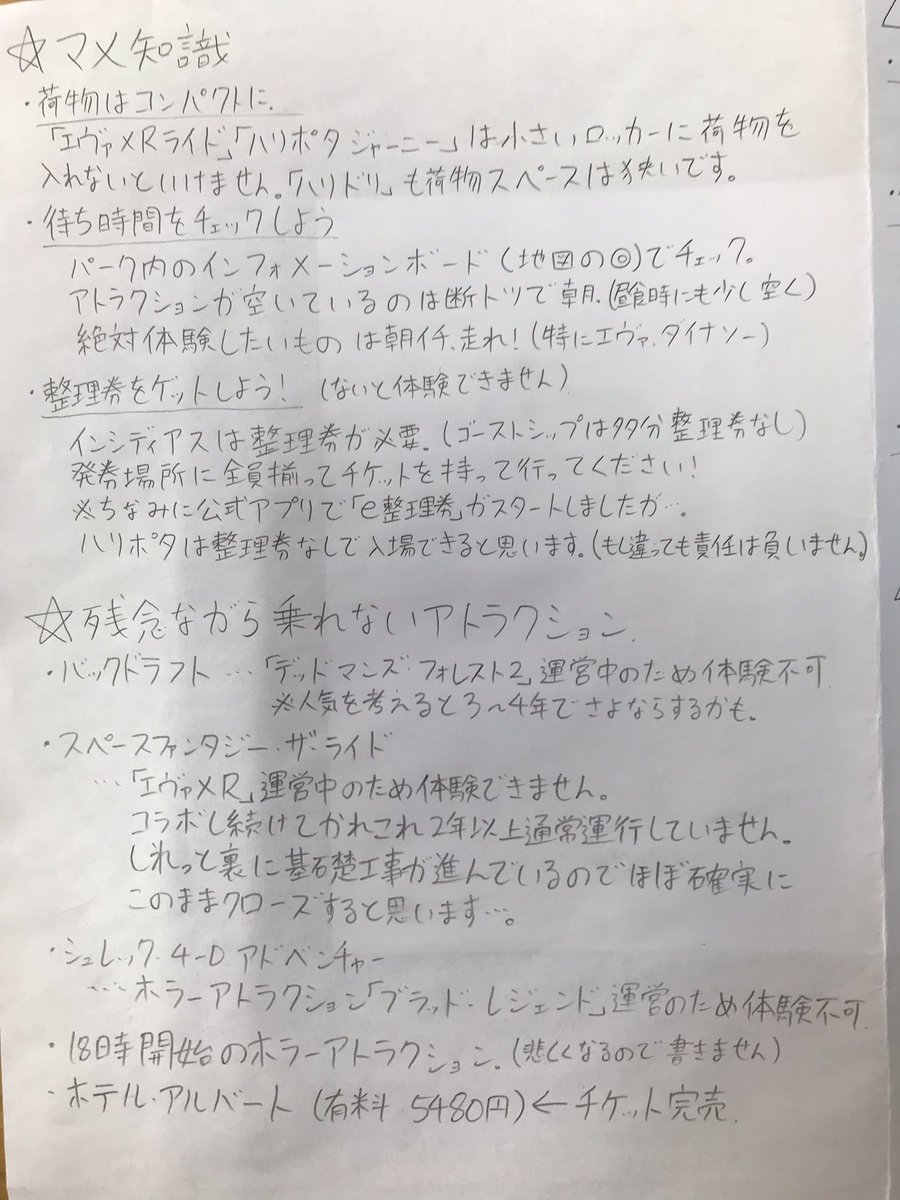 ☆マメ知識
・荷物はコンパクトに.
「エヴァXRライド」「ハリポタ ジャーニー」は小さいロッカーに荷物を
入れないといけません。「ハリドリ」も荷物スペースは狭いです。
・待ち時間をチェックしよう
パーク内のインフォメーションボード(地図の◎)でチェック。
アトラクションが空いているのは断トツで朝.(昼食時にも少し空く)
絶対体験したいものは朝イチ、走れ!(特にエヴァ、ダイナソー)
・整理券をゲットしよう! (ないと体験できません)
インシディアスは整理券が必要.(ゴーストシップは多分整理券なし)
発券場所に全員揃ってチケットを持って行ってください!
※ちなみに公式アプリで「e整理券」がスタートしましたが…。
ハリポタは整理券なしで入場できると思います。(もし違っても責任は負いません。)
☆残念ながら乗れないアトラクション.
・バックドラフト …「デッドマンズ・フォレスト2」運営中のため体験不可
※人気を考えると3~4年でさよならするかも。
・スペースファンタジー・ザ・ライド
…「エヴァXR」運営中のため体験できません。
コラボし続けてかれこれ2年以上通常運行していません。
しれっと裏に基礎工事が進んでいるのでほぼ確実に
このままクローズすると思います…。
・シュレック 4-D アドベンチャー
…ホラーアトラクション「ブラッド・レジェンド」運営のため体験不可.
・18時開始のホラーアトラクション.(悲しくなるので書きません)
・ホテル・アルバート (有料 5480円)←チケット完売.